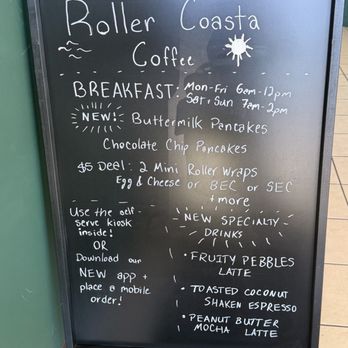 Roller Coasta
Coffee
BREAKFAST: Mon-Fri 6am-12pm
Sat, Sun 7am-2pm
NEW! Buttermilk Pancakes
Chocolate Chip Pancakes
$5 Deal: 2 Mini Roller Wraps
Egg & Cheese or BEC or SEC
+ more
Use the self-
serve kiosk
inside!
OR
Download our
NEW app +
place a mobile
order!
NEW SPECIALTY
DRINKS
• FRUITY PEBBLES
LATTE
• TOASTED COCONUT
SHAKEN ESPRESSO
• PEANUT BUTTER
MOCHA LATTE